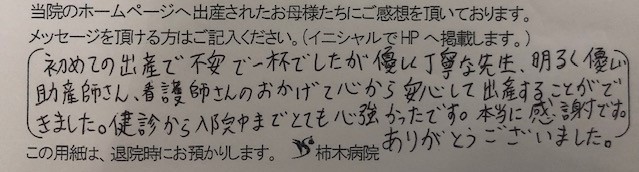 当院のホームページへ出産されたお母様たちにご感想を頂いております。
メッセージを頂ける方はご記入ください。(イニシャルでHPへ掲載します。)
初めての出産で不安で一杯でしたが優しく丁寧な先生、明るく優しい
助産師さん、看護師さんのおかげで心から安心して出産することがで
きました。健診から入院中までとても心強かったです。本当に感謝です。
ありがとうございました。
この用紙は、退院時にお預かりします。 柿木病院